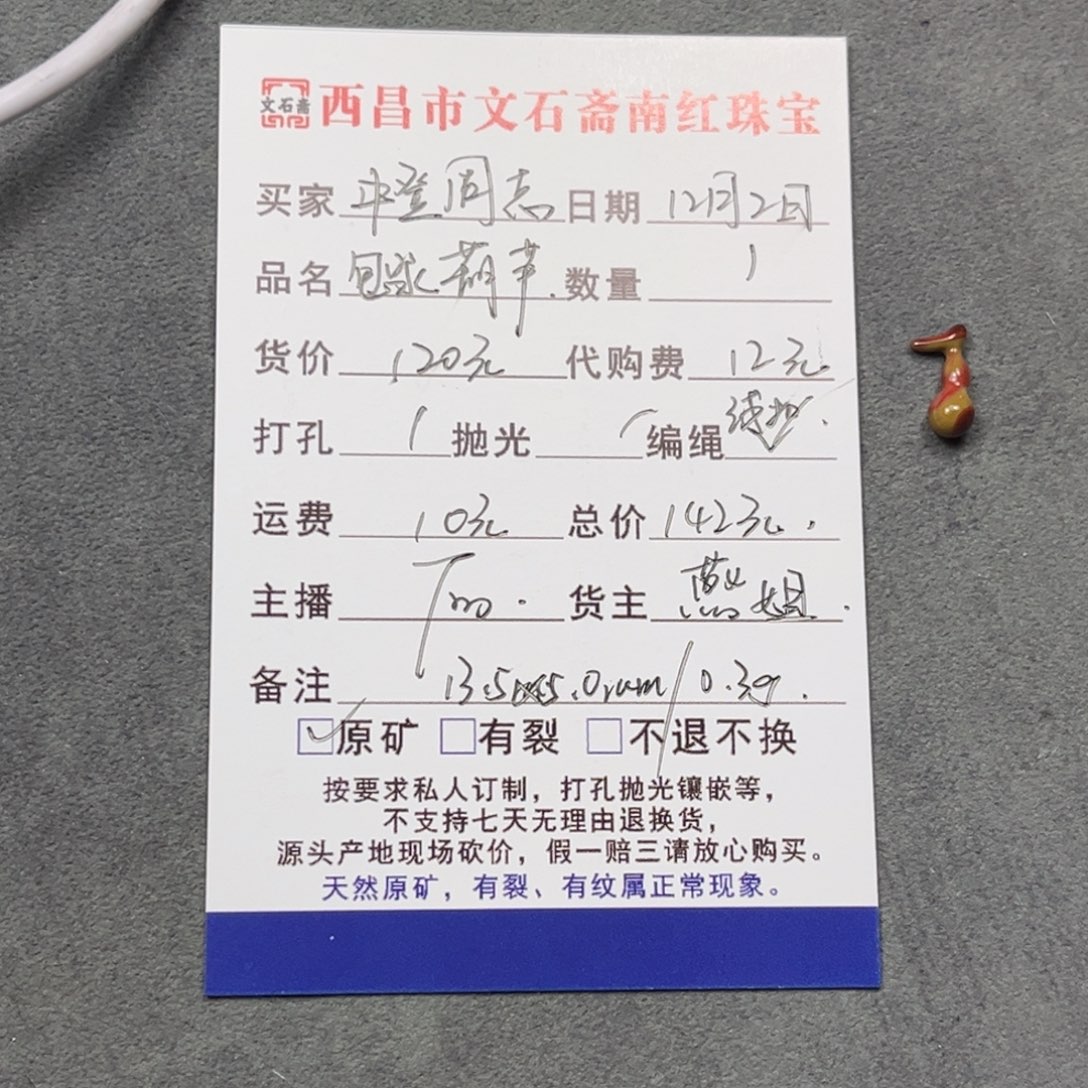 文石斋 西昌市文石斋南红珠宝
买家 斗登同志 日期 12月2日
品名 包浆葫芦. 数量 1
货价 120元 代购费 12元.
打孔 / 抛光 / 编绳
运费 10元 总价 142元.
主播 货主 燕姐.
备注 /0.3g.
原矿 有裂 不退不换
按要求私人订制，打孔抛光镶嵌等，
不支持七天无理由退换货，
源头产地现场砍价，假一赔三请放心购买。
天然原矿，有裂、有纹属正常现象。